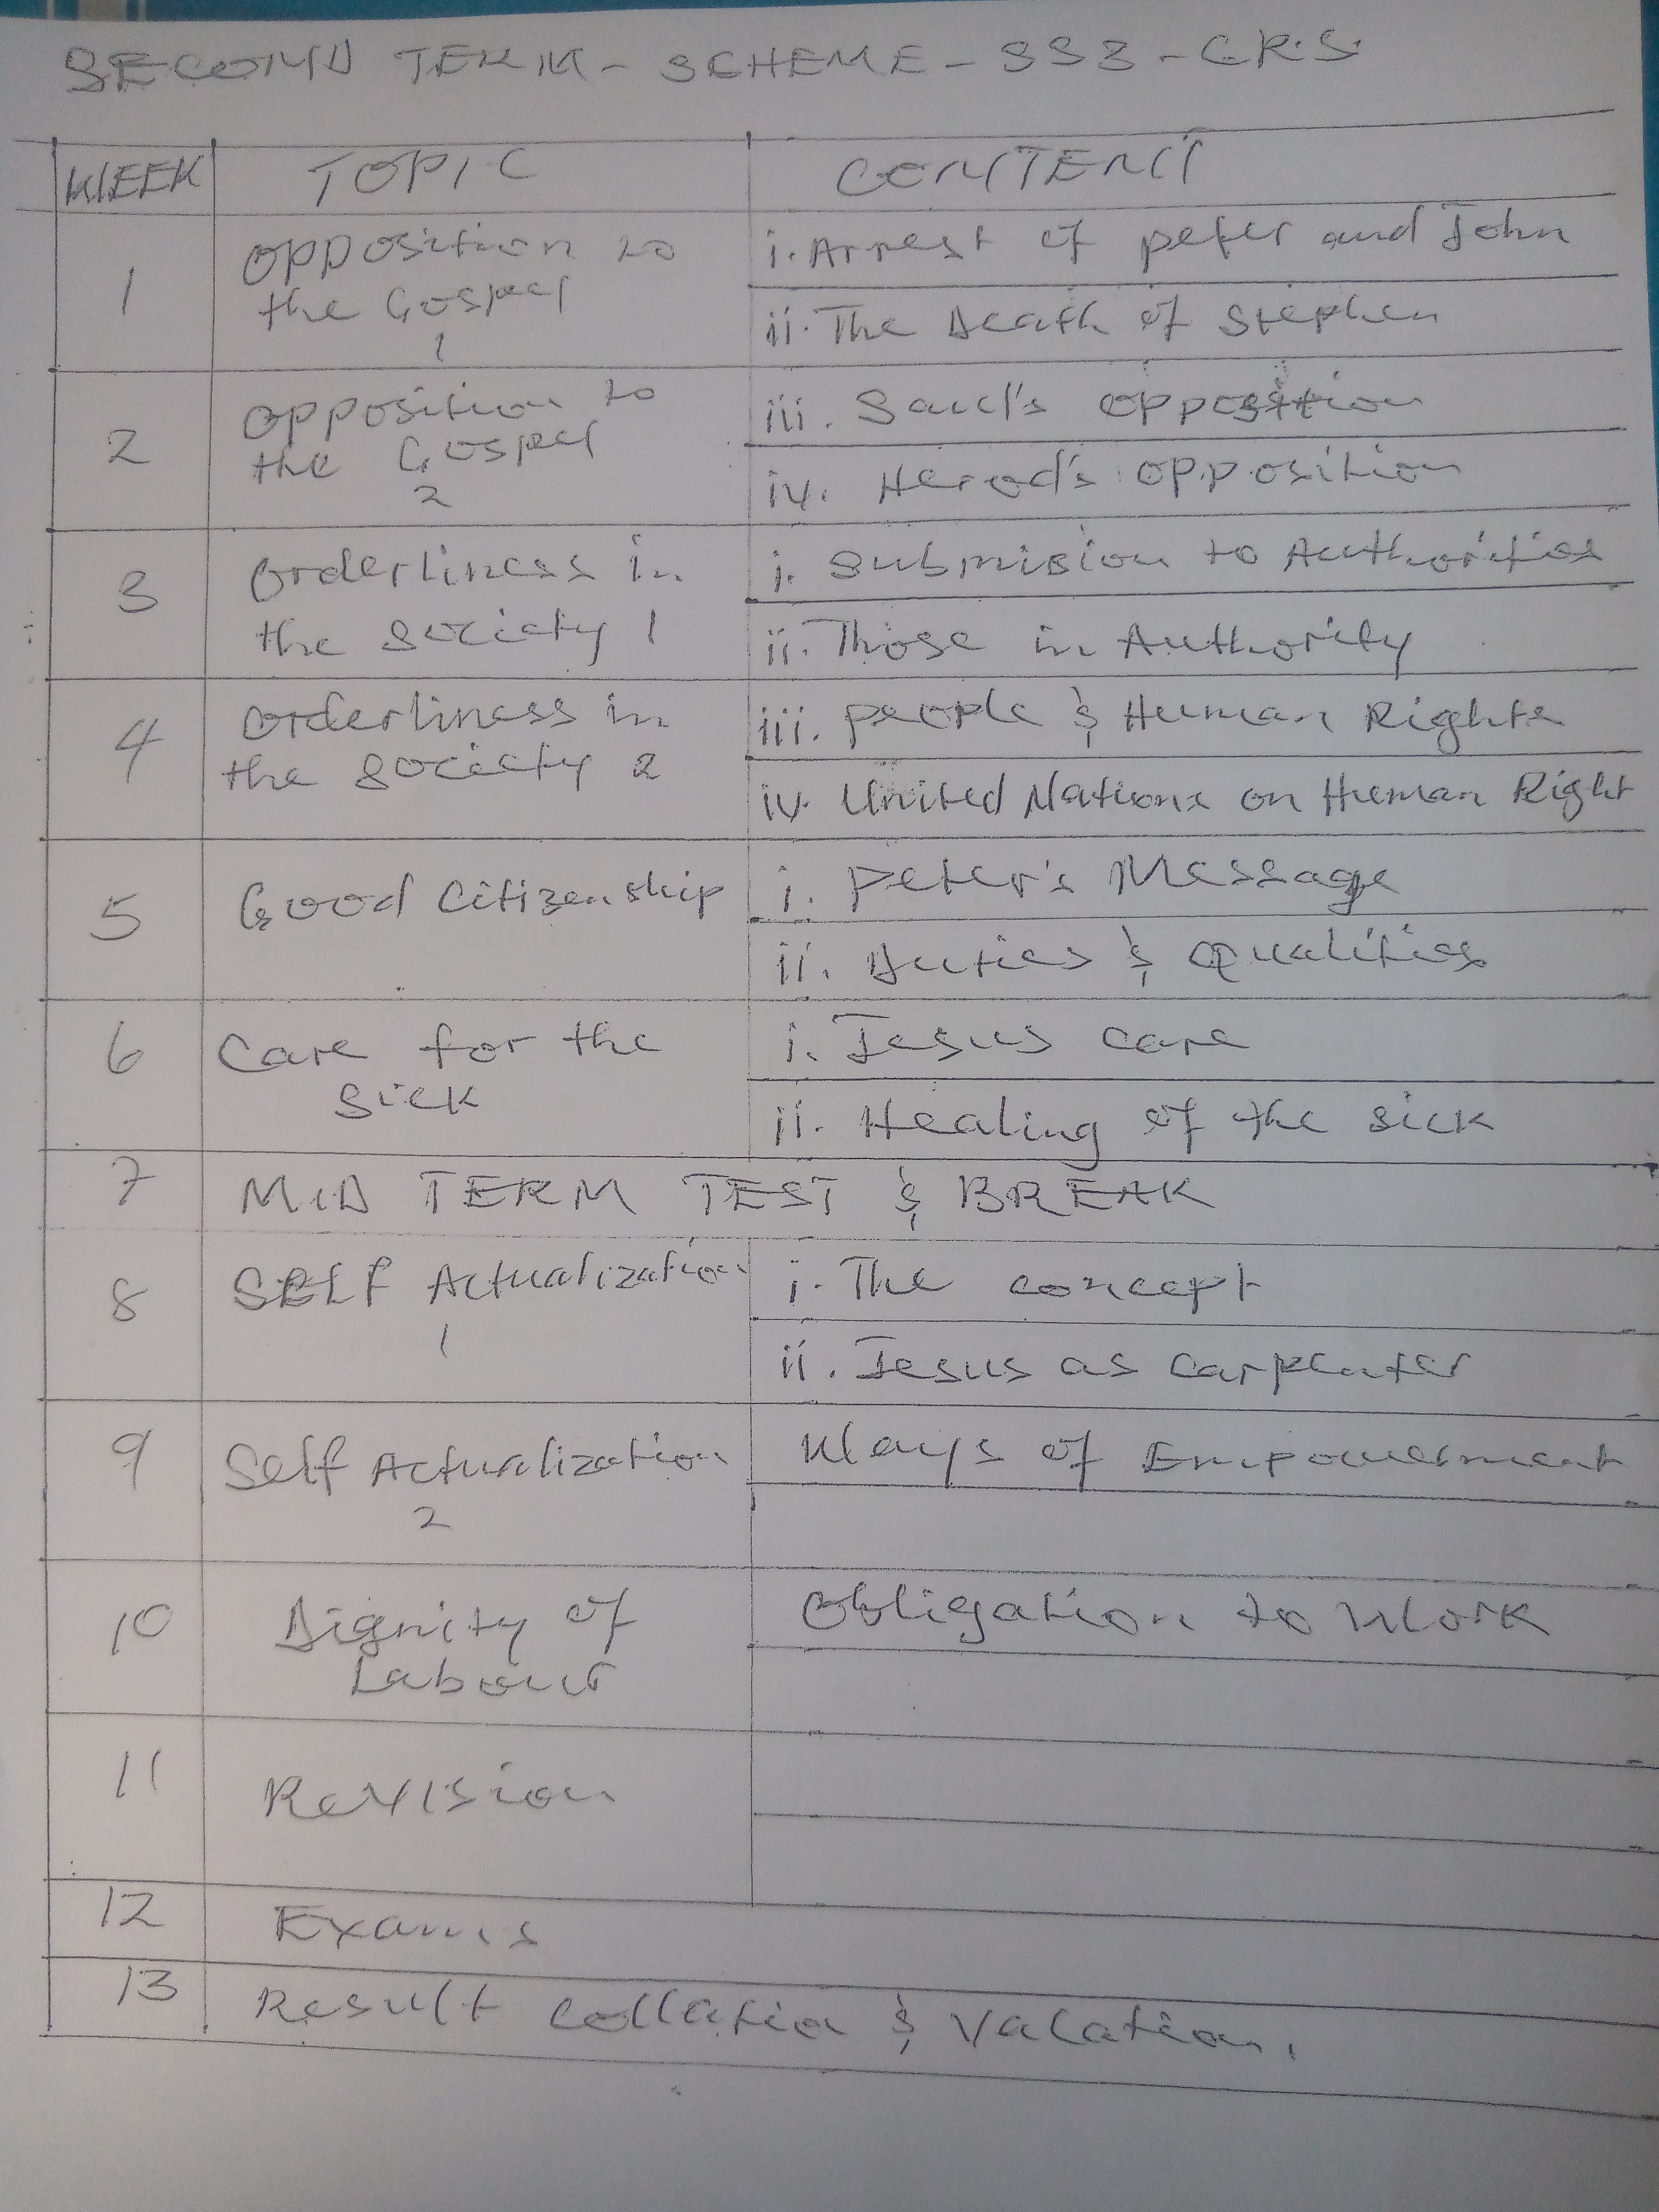 SECOND TERM - SCHEME - SS3 - C.R.S.
WEEK TOPIC CONTENT
1 Opposition to the Gospel 1
i. Arrest of peter and John
ii. The Death of Stephen
2 Opposition to the Gospel 2
iii. Saul's opposition
iv. Herod's opposition
3 Orderliness in the society 1
i. Submision to Authorities
ii. Those in Authority
4 Orderliness in the society 2
iii. people & Human Rights
iv. United Nations on Human Right
5 Good Citizenship
i. Peter's Message
ii. Duties & Qualities
6 Care for the Sick
i. Jesus care
ii. Healing of the sick
7 MID TERM TEST & BREAK
8 SELF Actualization 1
i. The concept
ii. Jesus as carpenter
9 Self Actualization 2
Ways of Empowerment
10 Dignity of Labour
Obligation to Work
11 Revision
12 Exams
13 Result Collation & Vacation.